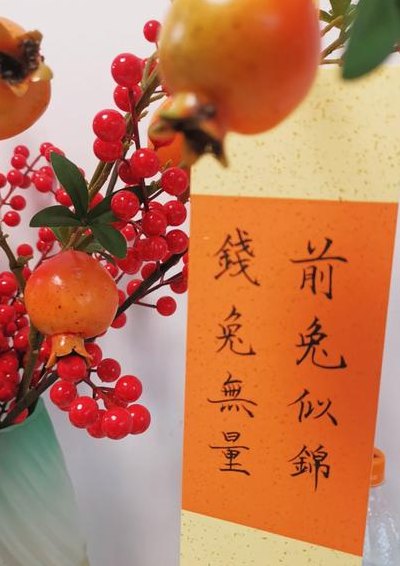 前兔似錦
錢兔無量